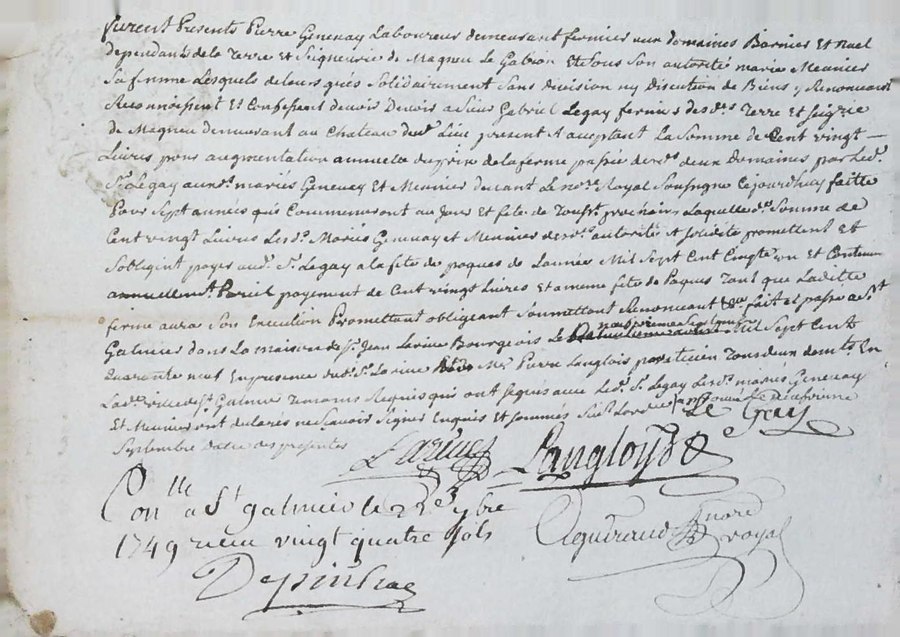 furent Presents Pierre Genevay Laboureur demeurant fermier aux domaines Barnier Et Ruel
dependants de la Terre et Seigneurie de Magneu Le Gabion Et sous Son autorité marie Meunier
Sa femme Lesquels de leurs grés Solidairement Sans division ny Discution de Biens y Renonceant
Reconnoissent Et Confessent devoir Devoir a Sieur Gabriel Legay fermier desd.s Terre et Seig.rie
de Magneu demeurant au Chateau dud. Lieu present Et acceptant La Somme de Cent vingt
Livres pour augmentation annuelle du prix de la ferme passée desd.s deux Domaines par Led.
S.r Legay auxd. mariés Genevay Et Meunier devant Le no.re Royal Soussigné Cejourdhuy faitte
Pour Sept années qui Commenceront au Jour Et fete de Touss.ts prochain Laquelle d. Somme de
Cent vingt Livres Lesd. Mariés Genevay et Meunier desd. autorité et solidité promettent Et
Sobligent payer aud. S.r Legay a la fete de paques de Lannée Mil Sept Cent Cinquante un Et Continuer
annuellem.t Pareil payement de Cent vingt Livres Et a meme fete de Paques Tant que Laditte
ferme aura Son Execution Promettant obligeant Soumettant Renonceant fait et passé a S.t
Galmier dans La maison de S.r Jean Larive Bourgeois Le Mil Sept Cent
Quarante neuf En presence dud. S.r Larive Et de M.e Pierre Langlois praticien Tous deux dem.ts En
Lad. ville de S.t Galmier Temoins Requis qui ont signés avec Led. S.r Legay Lesd. mariés Genevay
Et Meunier ont declarés ne Scavoir Signer Enquis Et sommés
Septembre datte des presentes
Le Gay
Larive Langloys
Con.lle a St galmier le 22e 7bre
1749 reçu vingt quatre sols
no.re royal